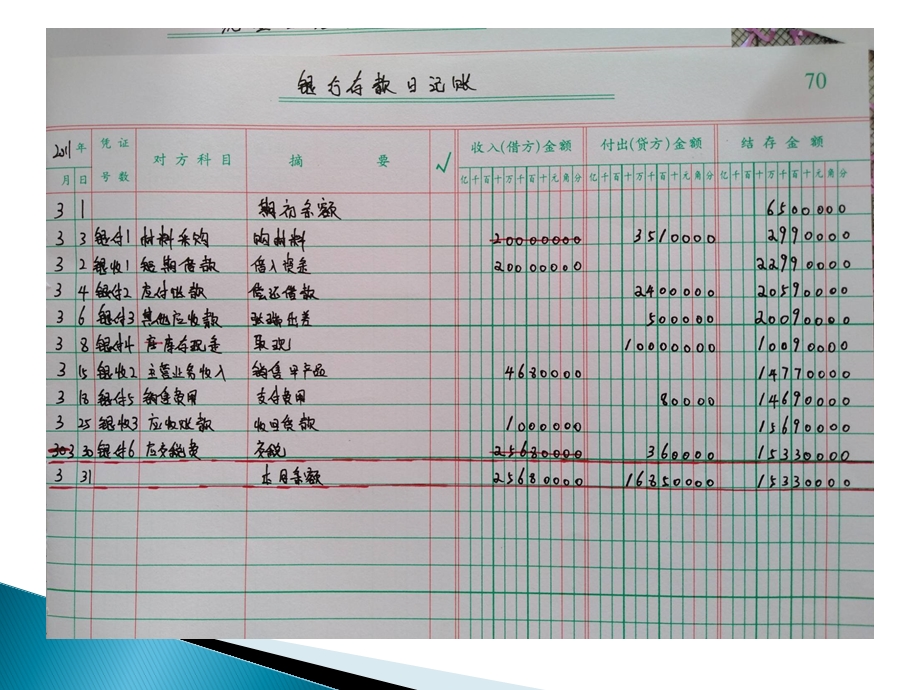 银行存款日记账
70
2011年 凭证 对方科目 摘要 √ 收入(借方)金额 付出(贷方)金额 结存金额
月 日 号数 亿千百十万千百十元角分 亿千百十万千百十元角分 亿千百十万千百十元角分
3 1 期初余额 6500000
3 3 银付1 材料采购 购材料 20000000 3510000 2990000
3 2 银收1 短期借款 借入资金 20000000 22990000
3 4 银付2 应付账款 偿还借款 2400000 20590000
3 6 银付3 其他应收款 张瑞出差 500000 20090000
3 8 银付4 库存现金 取现 10000000 10090000
3 15 银收2 主营业务收入 销售甲产品 4680000 14770000
3 18 银付5 销售费用 支付费用 80000 14690000
3 25 银收3 应收账款 收回货款 1000000 15690000
3 30 银付6 应交税费 交税 25680000 360000 15330000
3 31 本月余额 25680000 16850000 15330000